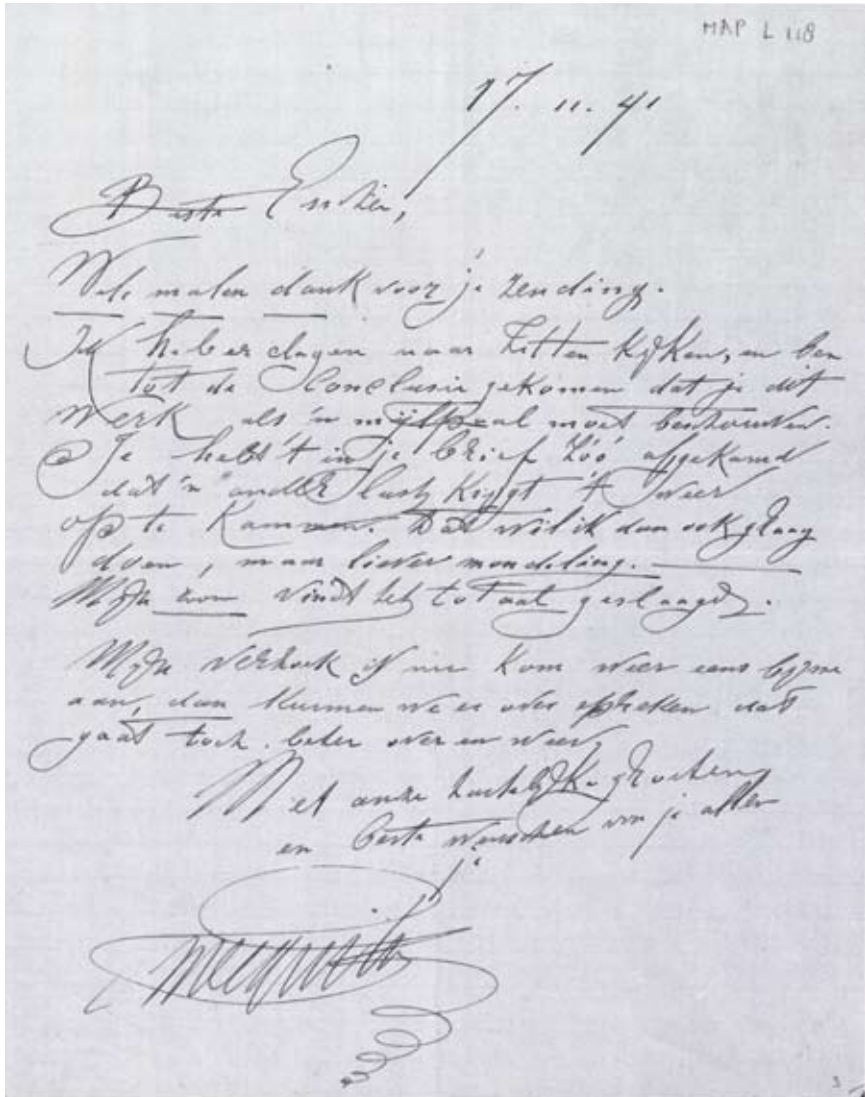 MAP L 118
17. 11. 41
Beste
Vele malen dank voor je zending.
Ik heb er dagen naar zitten kijken, en ben
tot de Conclusie gekomen dat je dit
werk als 'n mijlpaal moet beschouwen.
Je hebt 't in je brief zóó afgekamd
dat 'n ander lust krijgt 't weer
op te Kammen. Dat wil ik dan ook graag
doen, maar liever mondeling.
Mijn zoon vindt het totaal geslaagd.
Mijn verzoek is nu kom weer eens bij me
aan, dan kunnen we er over spreken dat
gaat toch beter over en weer
Met onze hartelijke groeten
en beste wenschen van je aller
je